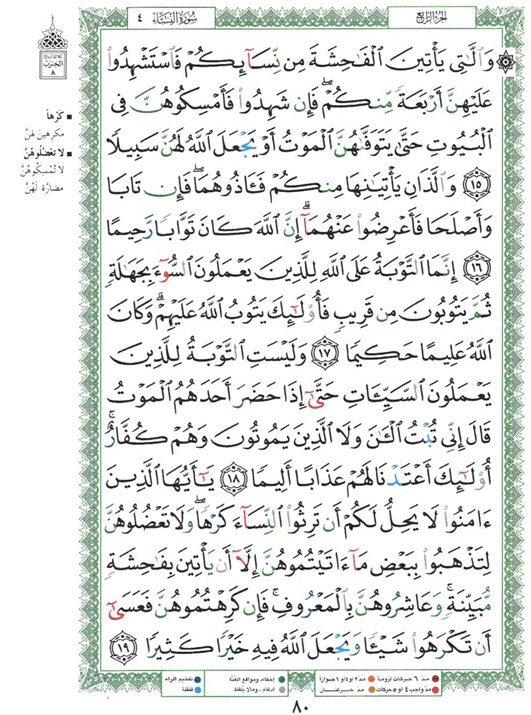 الجزء الرابع
سورة النساء ٤
وَٱلَّٰتِى يَأْتِينَ ٱلْفَٰحِشَةَ مِن نِّسَآئِكُمْ فَٱسْتَشْهِدُوا۟
عَلَيْهِنَّ أَرْبَعَةً مِّنكُمْ ۖ فَإِن شَهِدُوا۟ فَأَمْسِكُوهُنَّ فِى
ٱلْبُيُوتِ حَتَّىٰ يَتَوَفَّىٰهُنَّ ٱلْمَوْتُ أَوْ يَجْعَلَ ٱللَّهُ لَهُنَّ سَبِيلًا
١٥ وَٱلَّذَانِ يَأْتِيَٰنِهَا مِنكُمْ فَـَٔاذُوهُمَا ۖ فَإِن تَابَا
وَأَصْلَحَا فَأَعْرِضُوا۟ عَنْهُمَآ ۗ إِنَّ ٱللَّهَ كَانَ تَوَّابًا رَّحِيمًا
١٦ إِنَّمَا ٱلتَّوْبَةُ عَلَى ٱللَّهِ لِلَّذِينَ يَعْمَلُونَ ٱلسُّوٓءَ بِجَهَٰلَةٍ
ثُمَّ يَتُوبُونَ مِن قَرِيبٍ فَأُو۟لَٰٓئِكَ يَتُوبُ ٱللَّهُ عَلَيْهِمْ ۗ وَكَانَ
ٱللَّهُ عَلِيمًا حَكِيمًا ١٧ وَلَيْسَتِ ٱلتَّوْبَةُ لِلَّذِينَ
يَعْمَلُونَ ٱلسَّيِّـَٔاتِ حَتَّىٰٓ إِذَا حَضَرَ أَحَدَهُمُ ٱلْمَوْتُ
قَالَ إِنِّى تُبْتُ ٱلْـَٰٔنَ وَلَا ٱلَّذِينَ يَمُوتُونَ وَهُمْ كُفَّارٌ ۚ
أُو۟لَٰٓئِكَ أَعْتَدْنَا لَهُمْ عَذَابًا أَلِيمًا ١٨ يَٰٓأَيُّهَا ٱلَّذِينَ
ءَامَنُوا۟ لَا يَحِلُّ لَكُمْ أَن تَرِثُوا۟ ٱلنِّسَآءَ كَرْهًا ۖ وَلَا تَعْضُلُوهُنَّ
لِتَذْهَبُوا۟ بِبَعْضِ مَآ ءَاتَيْتُمُوهُنَّ إِلَّآ أَن يَأْتِينَ بِفَٰحِشَةٍ
مُّبَيِّنَةٍ ۚ وَعَاشِرُوهُنَّ بِٱلْمَعْرُوفِ ۚ فَإِن كَرِهْتُمُوهُنَّ فَعَسَىٰٓ
أَن تَكْرَهُوا۟ شَيْـًٔا وَيَجْعَلَ ٱللَّهُ فِيهِ خَيْرًا كَثِيرًا ١٩
الحزب
٨
كَرْهاً
مكرهين لهنّ
لا تَعْضُلُوهُنَّ
لا تُمْسِكُوهُنَّ
مضارّة لَهُنَّ
مدّ ٦ حركات لزوماً
مدّ ٢ أو ٤ أو ٦ جوازاً
إخفاء، ومواقع الغُنَّة
تفخيم الراء
مدّ واجب ٤ أو ٥ حركات
مدّ حركتان
إدغام، وما لا يُلفَظ
قلقلة
٨٠